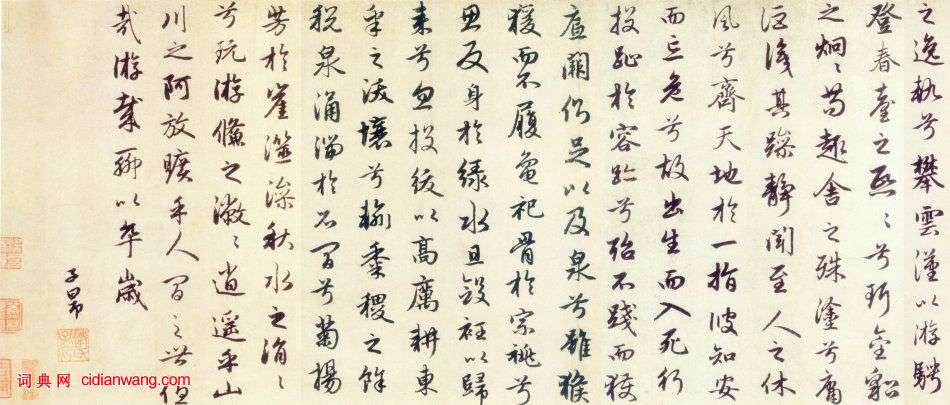 之逸軌兮攀雲漢以游騁
登春臺之熙〻兮珥金貂
之炯〻苟趣舍之殊塗兮庸
詎識其躁靜聞至人之休
風兮齊天地於一指彼知安
而忘危兮故出生而入死行
投趾於容跡兮殆不踐而獲
底闕側足以及泉兮雖猴
猨而不履龜祀骨於宗祧兮
思反身於綠水且斂衽以歸
来兮忽投紱以高厲耕東
皋之沃壤兮輸黍稷之餘
稅泉涌湍於石間兮菊揚
芳於崖澨澡秋水之涓〻
兮玩游儵之潎〻逍遥乎山
川之阿放曠乎人間之世優
哉游哉聊以卒歲
子昂
词典网 cidianwang.com